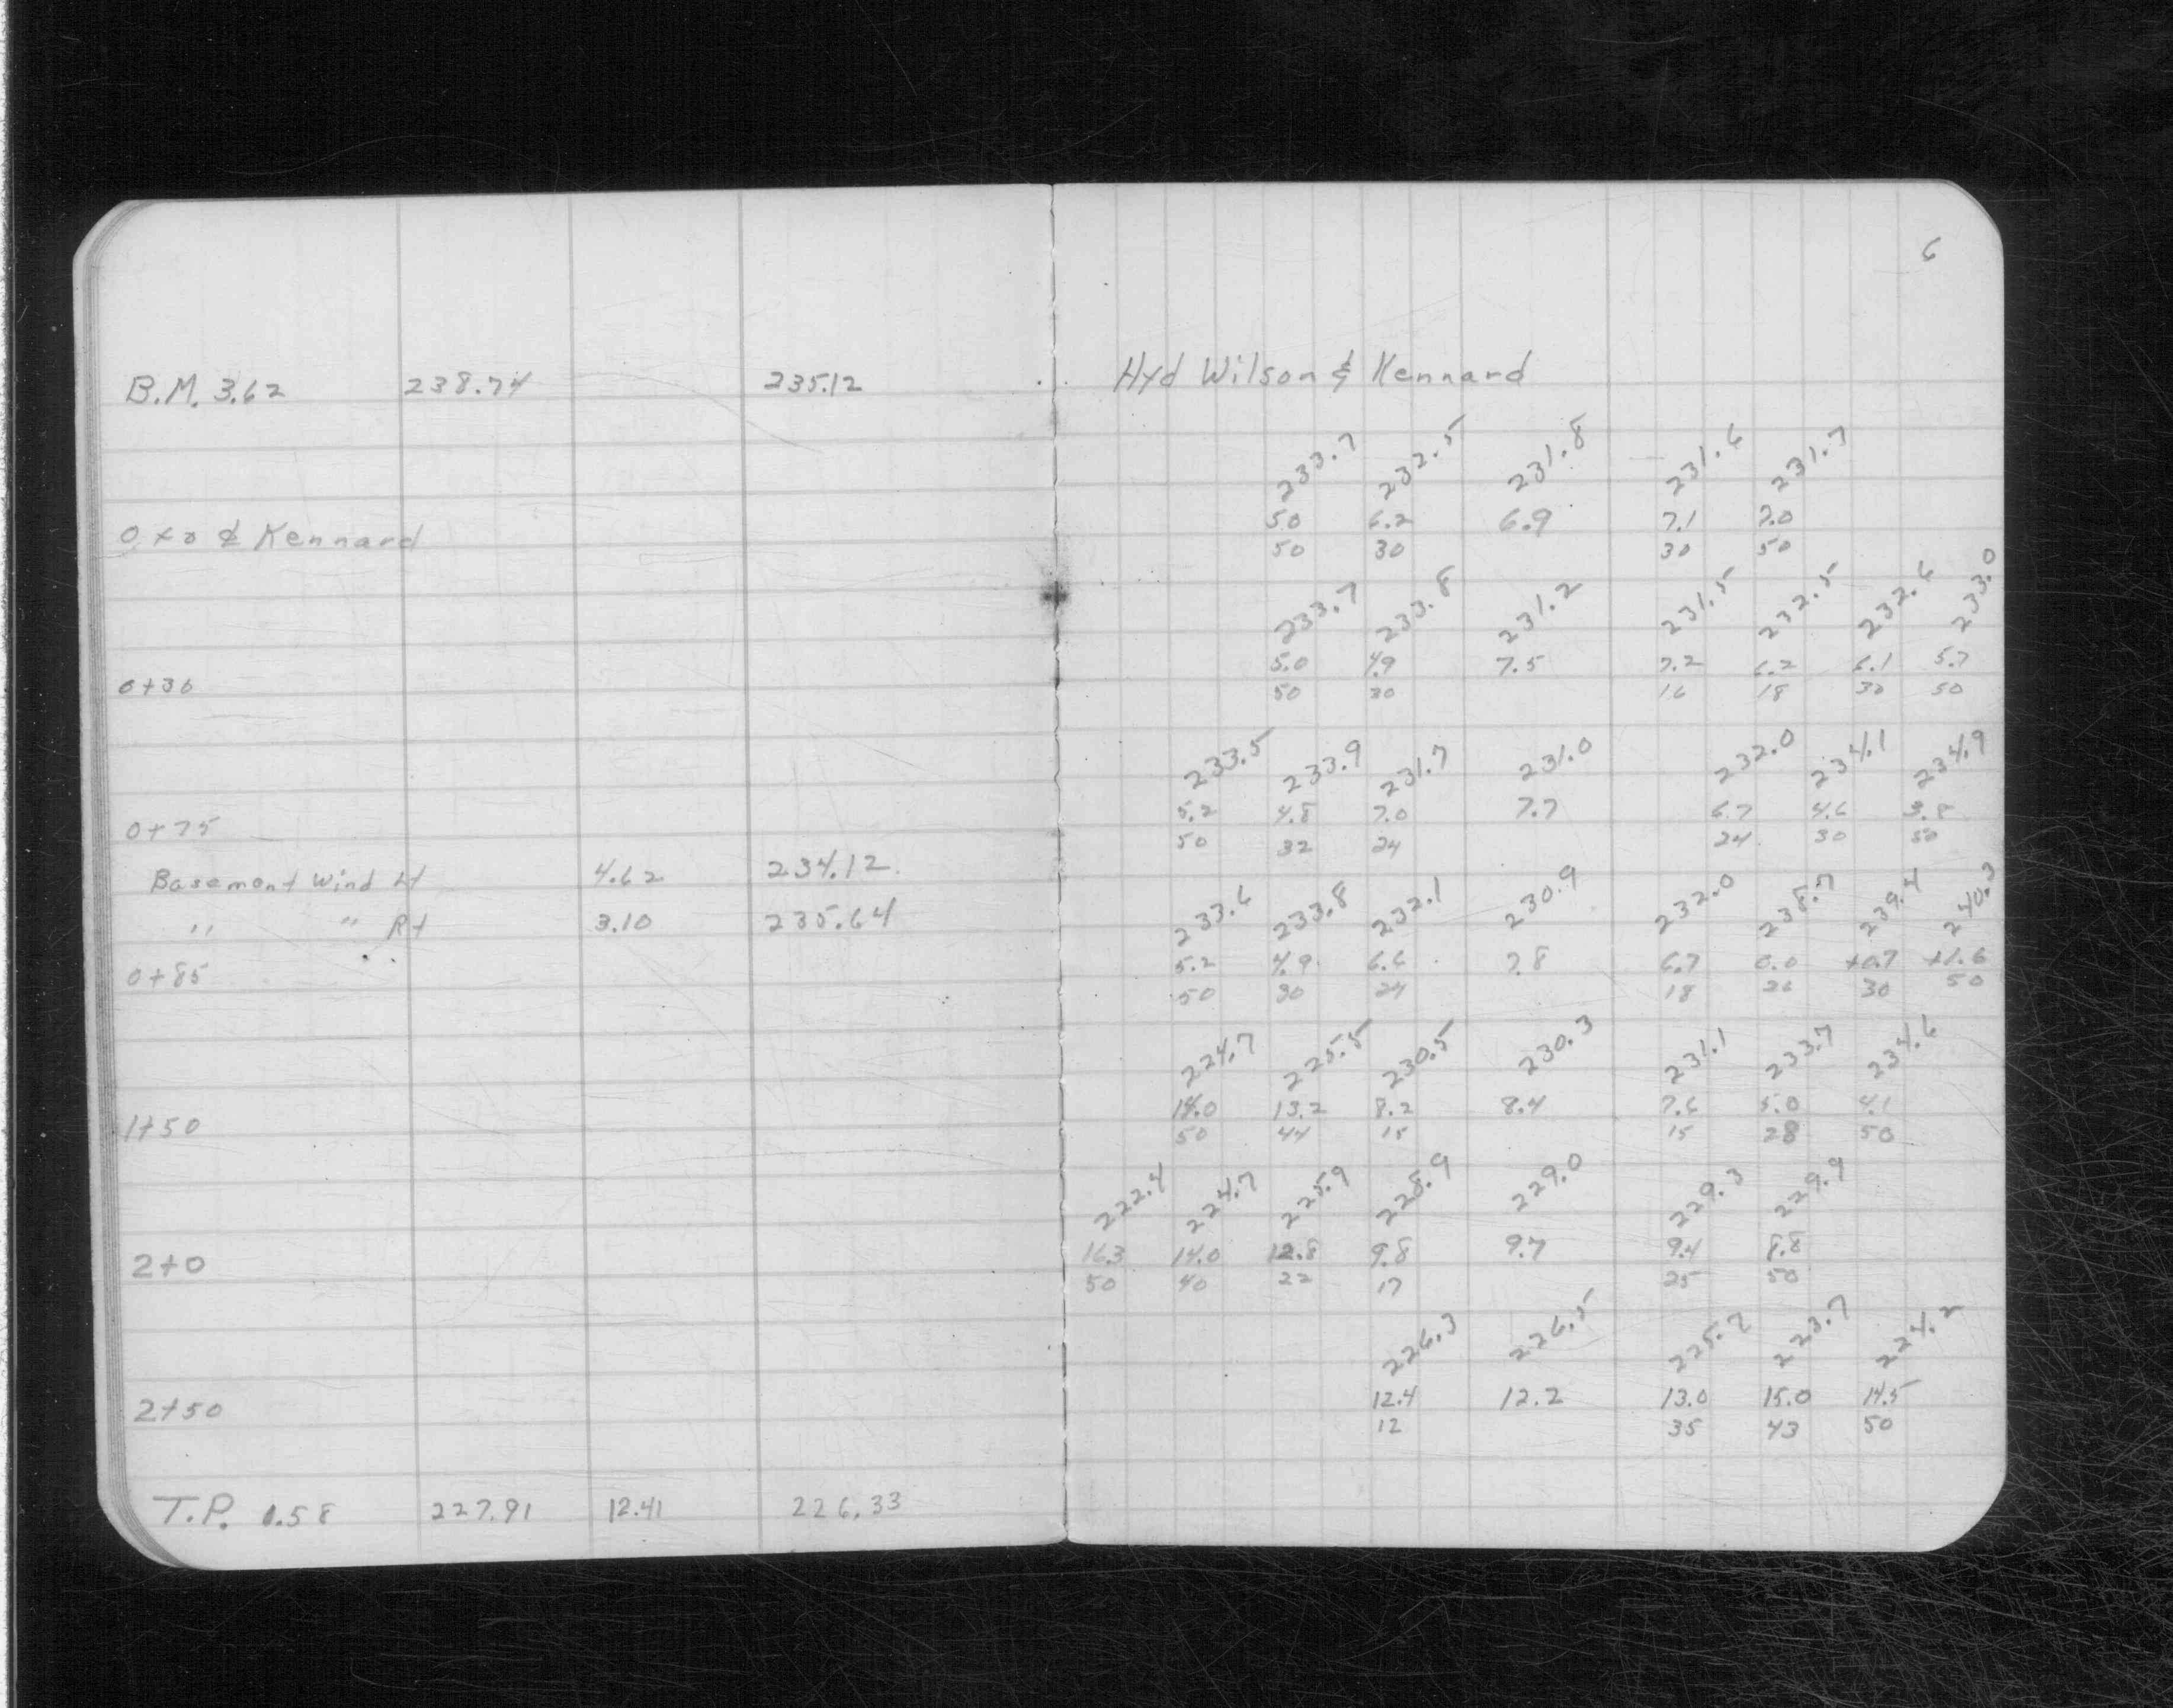 6
B.M. 3.62 238.74 235.12 Hyd Wilson & Kennard
233.7 232.5 231.8 231.6 231.7
50 6.2 6.9 7.1 7.0
0+0 ⅊ Kennard 50 30 30 50
233.7 233.8 231.2 231.5 232.5 232.6 233.0
5.0 4.9 7.5 7.2 6.2 6.1 5.7
0+30 50 30 16 18 30 50
233.5 233.9 231.7 231.0 232.0 234.1 234.9
5.2 4.8 7.0 7.7 6.7 4.6 3.8
0+75 50 32 24 24 30 50
Basement Wind Lt 4.62 234.12
" " Rt 3.10 235.64
233.6 233.8 232.1 230.9 232.0 238.7 239.4 240.3
5.2 4.9 6.6 7.8 6.7 0.0 +0.7 +1.6
0+85 50 30 24 18 26 30 50
224.7 225.5 230.5 230.3 231.1 233.7 234.6
14.0 13.2 8.2 8.4 7.6 5.0 4.1
1+50 50 44 15 15 28 50
222.4 224.7 225.9 228.9 229.0 229.3 229.9
16.3 14.0 12.8 9.8 9.7 9.4 8.8
2+0 50 40 22 17 25 50
226.3 226.5 225.7 223.7 224.2
12.4 12.2 13.0 15.0 14.5
2+50 12 35 43 50
T.P. 1.58 227.91 12.41 226.33